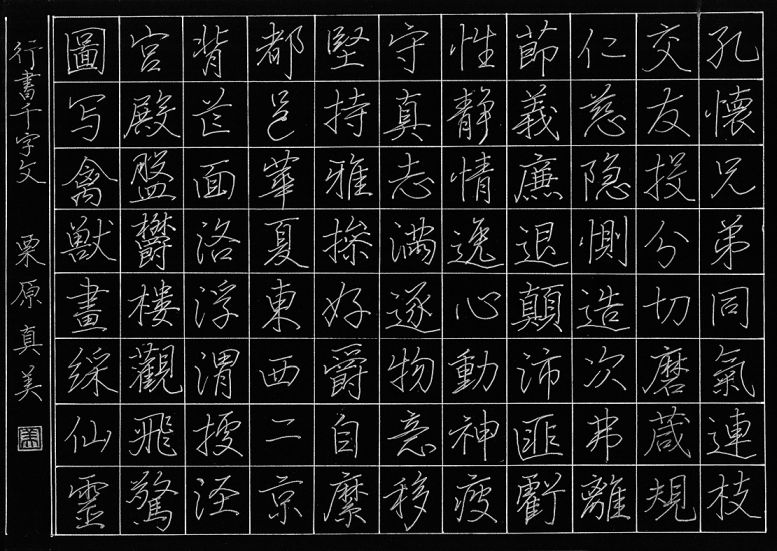 孔懐兄弟同氣連枝
交友投分切磨葴規
仁慈隐惻造次弗離
節義廉退顛沛匪虧
性静情逸心動神疲
守真志満逐物意移
堅持雅操好爵自縻
都邑華夏東西二京
背芒面洛浮渭據涇
宮殿盤欝樓觀飛驚
圖写禽獣畫綵仙霊
行書千字文 栗原真美